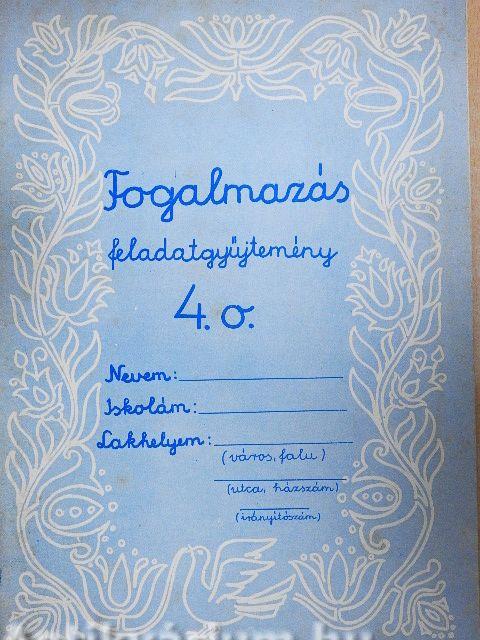 Fogalmazás
feladatgyűjtemény
4. o.
Nevem:
Iskolám:
Lakhelyem:
(város, falu)
(utca, házszám)
(irányítószám)
Antikvárium.hu